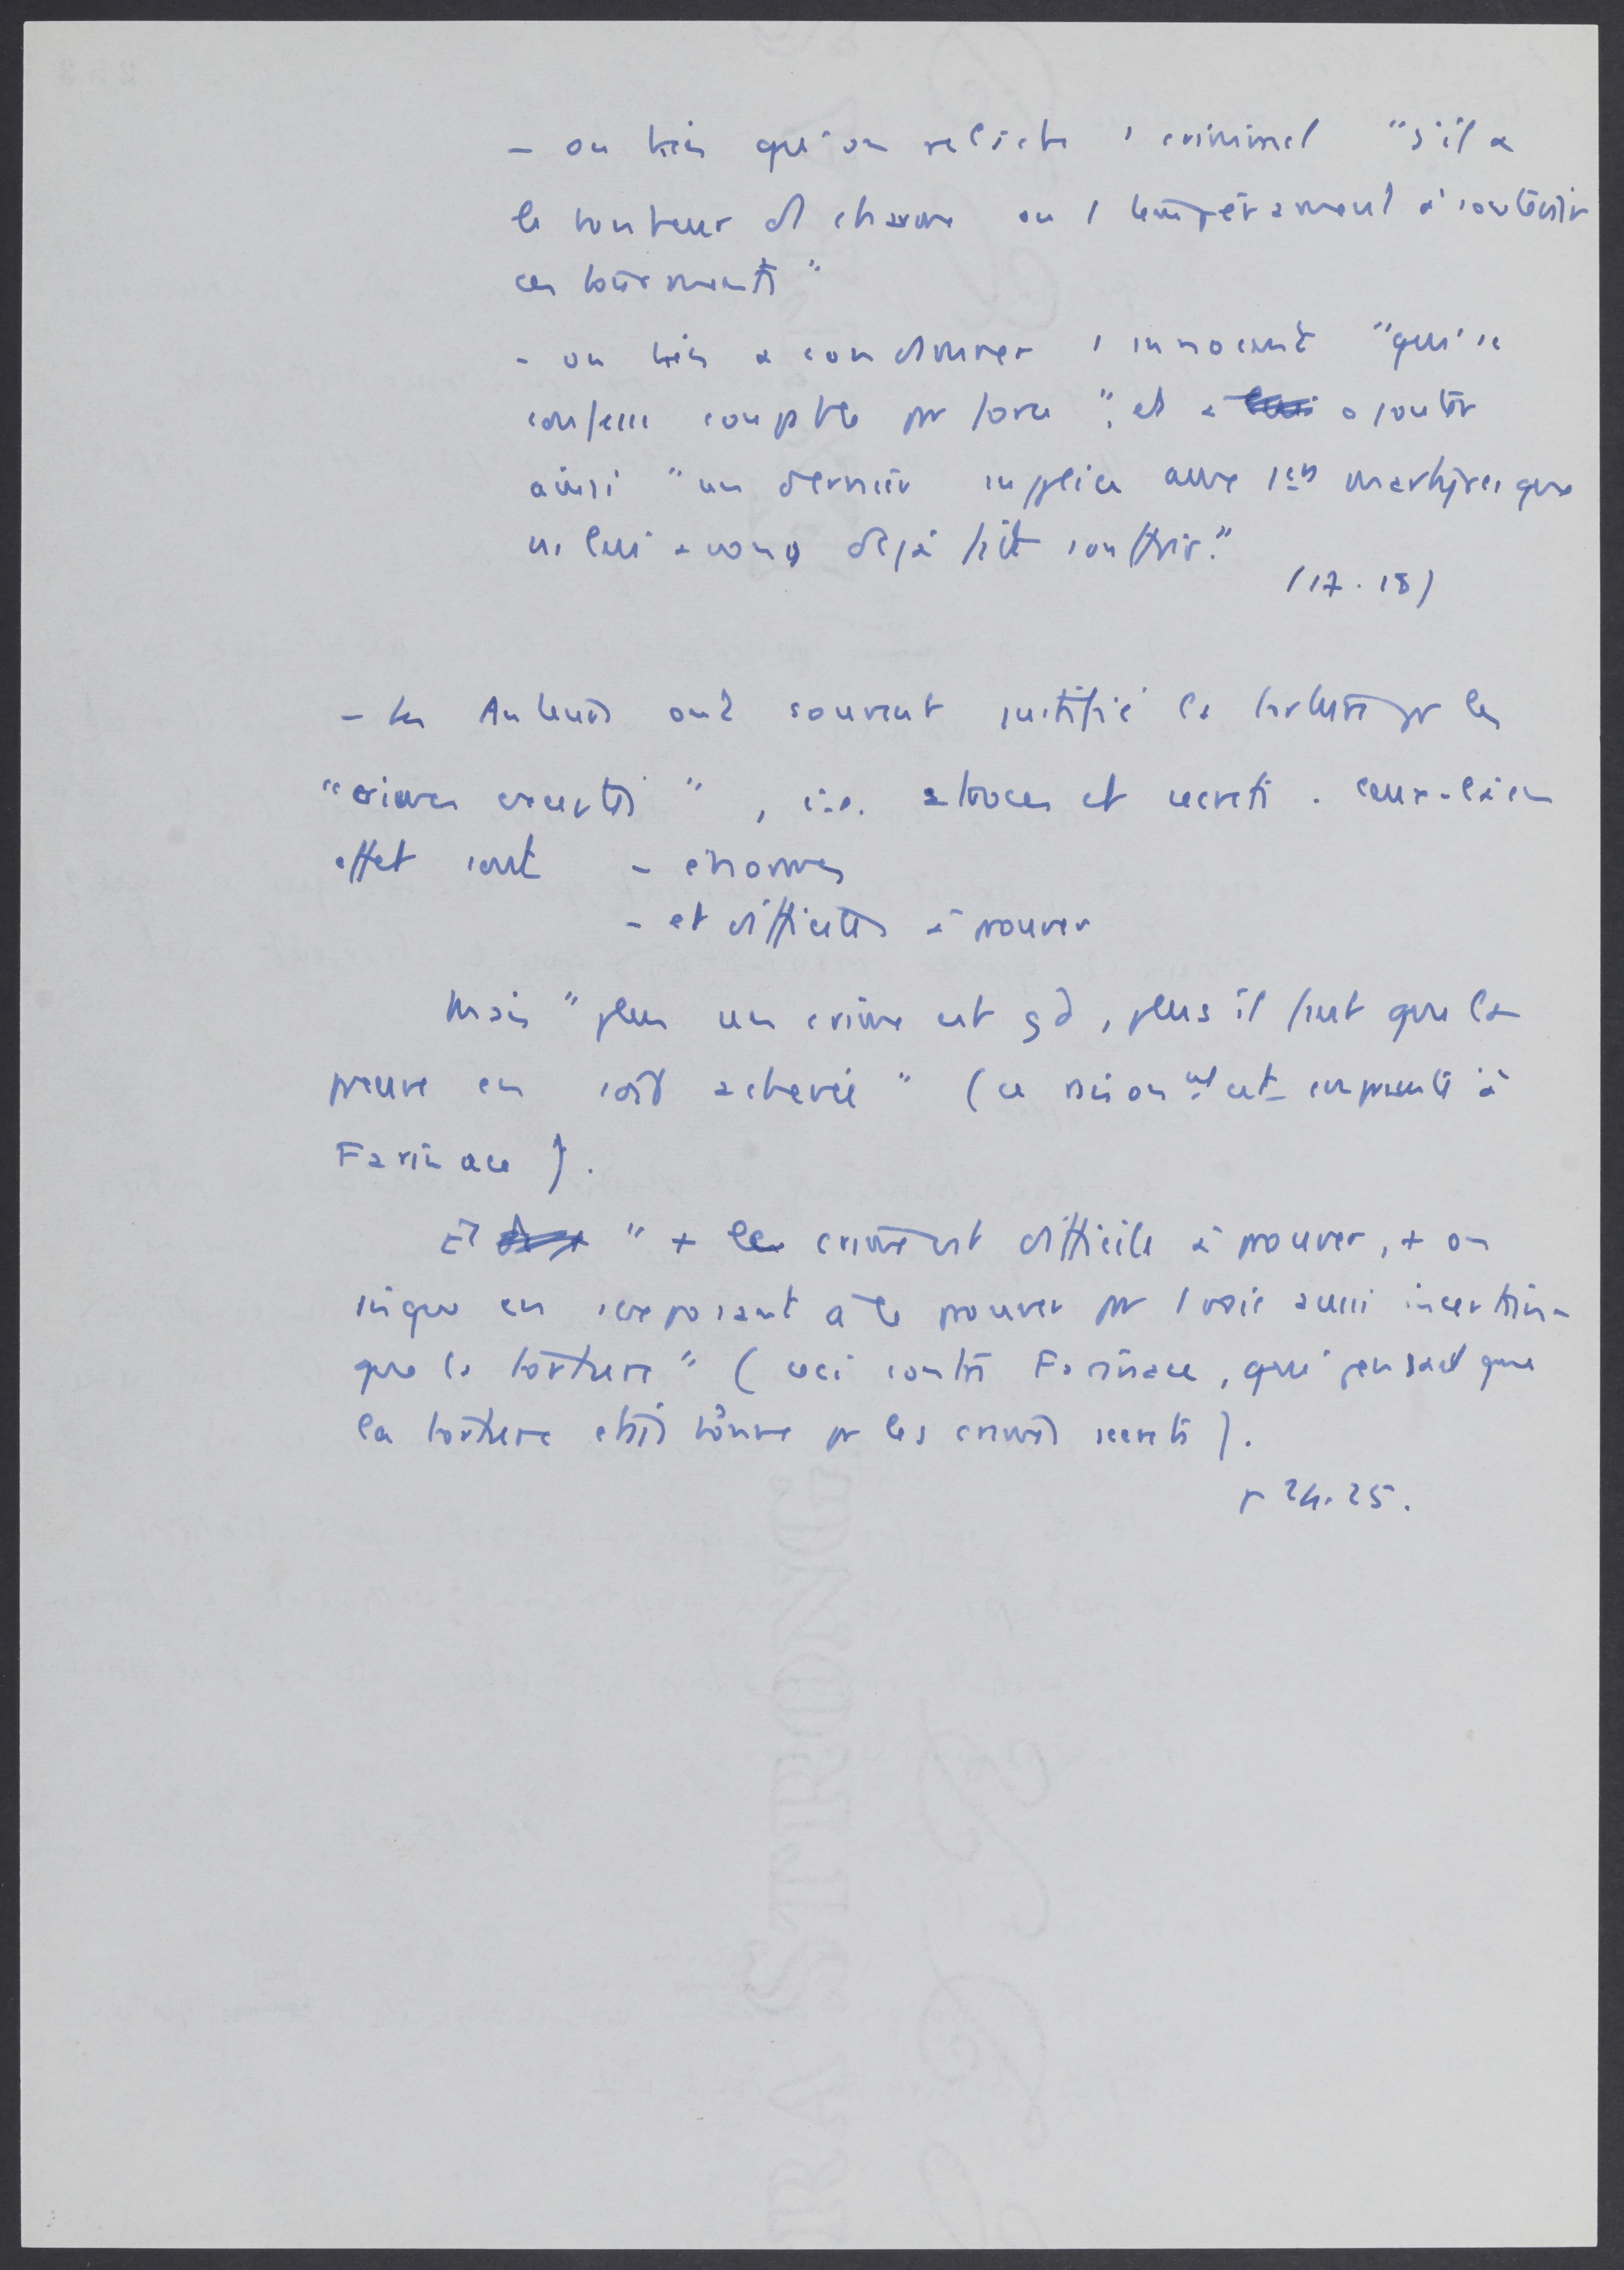 - ou bien qu'on relâche 1 criminel "s'il a
le bonheur d' 1 tempérament à soutenir
ces tourments"
- ou bien à condamner 1 innocent "qui se
confesse coupable par force", et à ajouter
ainsi "un dernier supplice aux 1ers martyres que
ns lui avons déjà fait souffrir."
(17.18)
- Les Auteurs ont souvent justifié la torture pr les
"crimes exceptés", i.e. atroces et secrets. Ceux-là en
effet sont - énormes
- et difficiles à prouver
Mais "plus un crime est gd, plus il faut que la
preuve en soit achevée" (ce raisonnt est emprunté à
Farinace).
Et "+ le crime est difficile à prouver, + on
risque en s'exposant à le prouver par 1 voie aussi incertaine
que la torture" (ceci contre Farinace, qui pensait que
la torture était bonne pr les crimes secrets).
p 24.25.